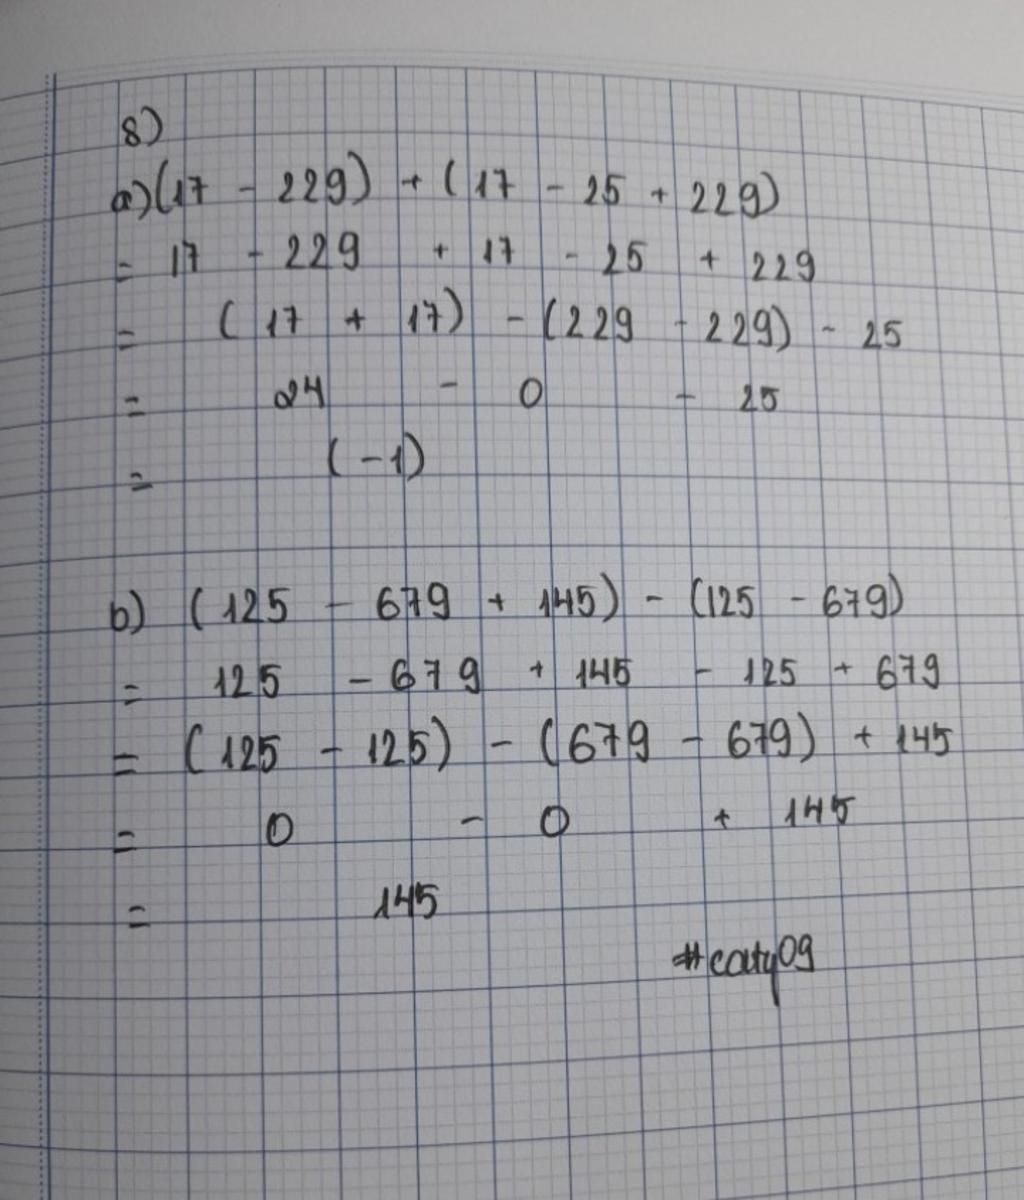 8)
a) (17 - 229) + (17 - 25 + 229)
= 17 - 229 + 17 - 25 + 229
= (17 + 17) - (229 - 229) - 25
= 24 - 0 - 25
= (-1)
b) (125 - 679 + 145) - (125 - 679)
= 125 - 679 + 145 - 125 + 679
= (125 - 125) - (679 - 679) + 145
= 0 - 0 + 145
= 145
#caty09